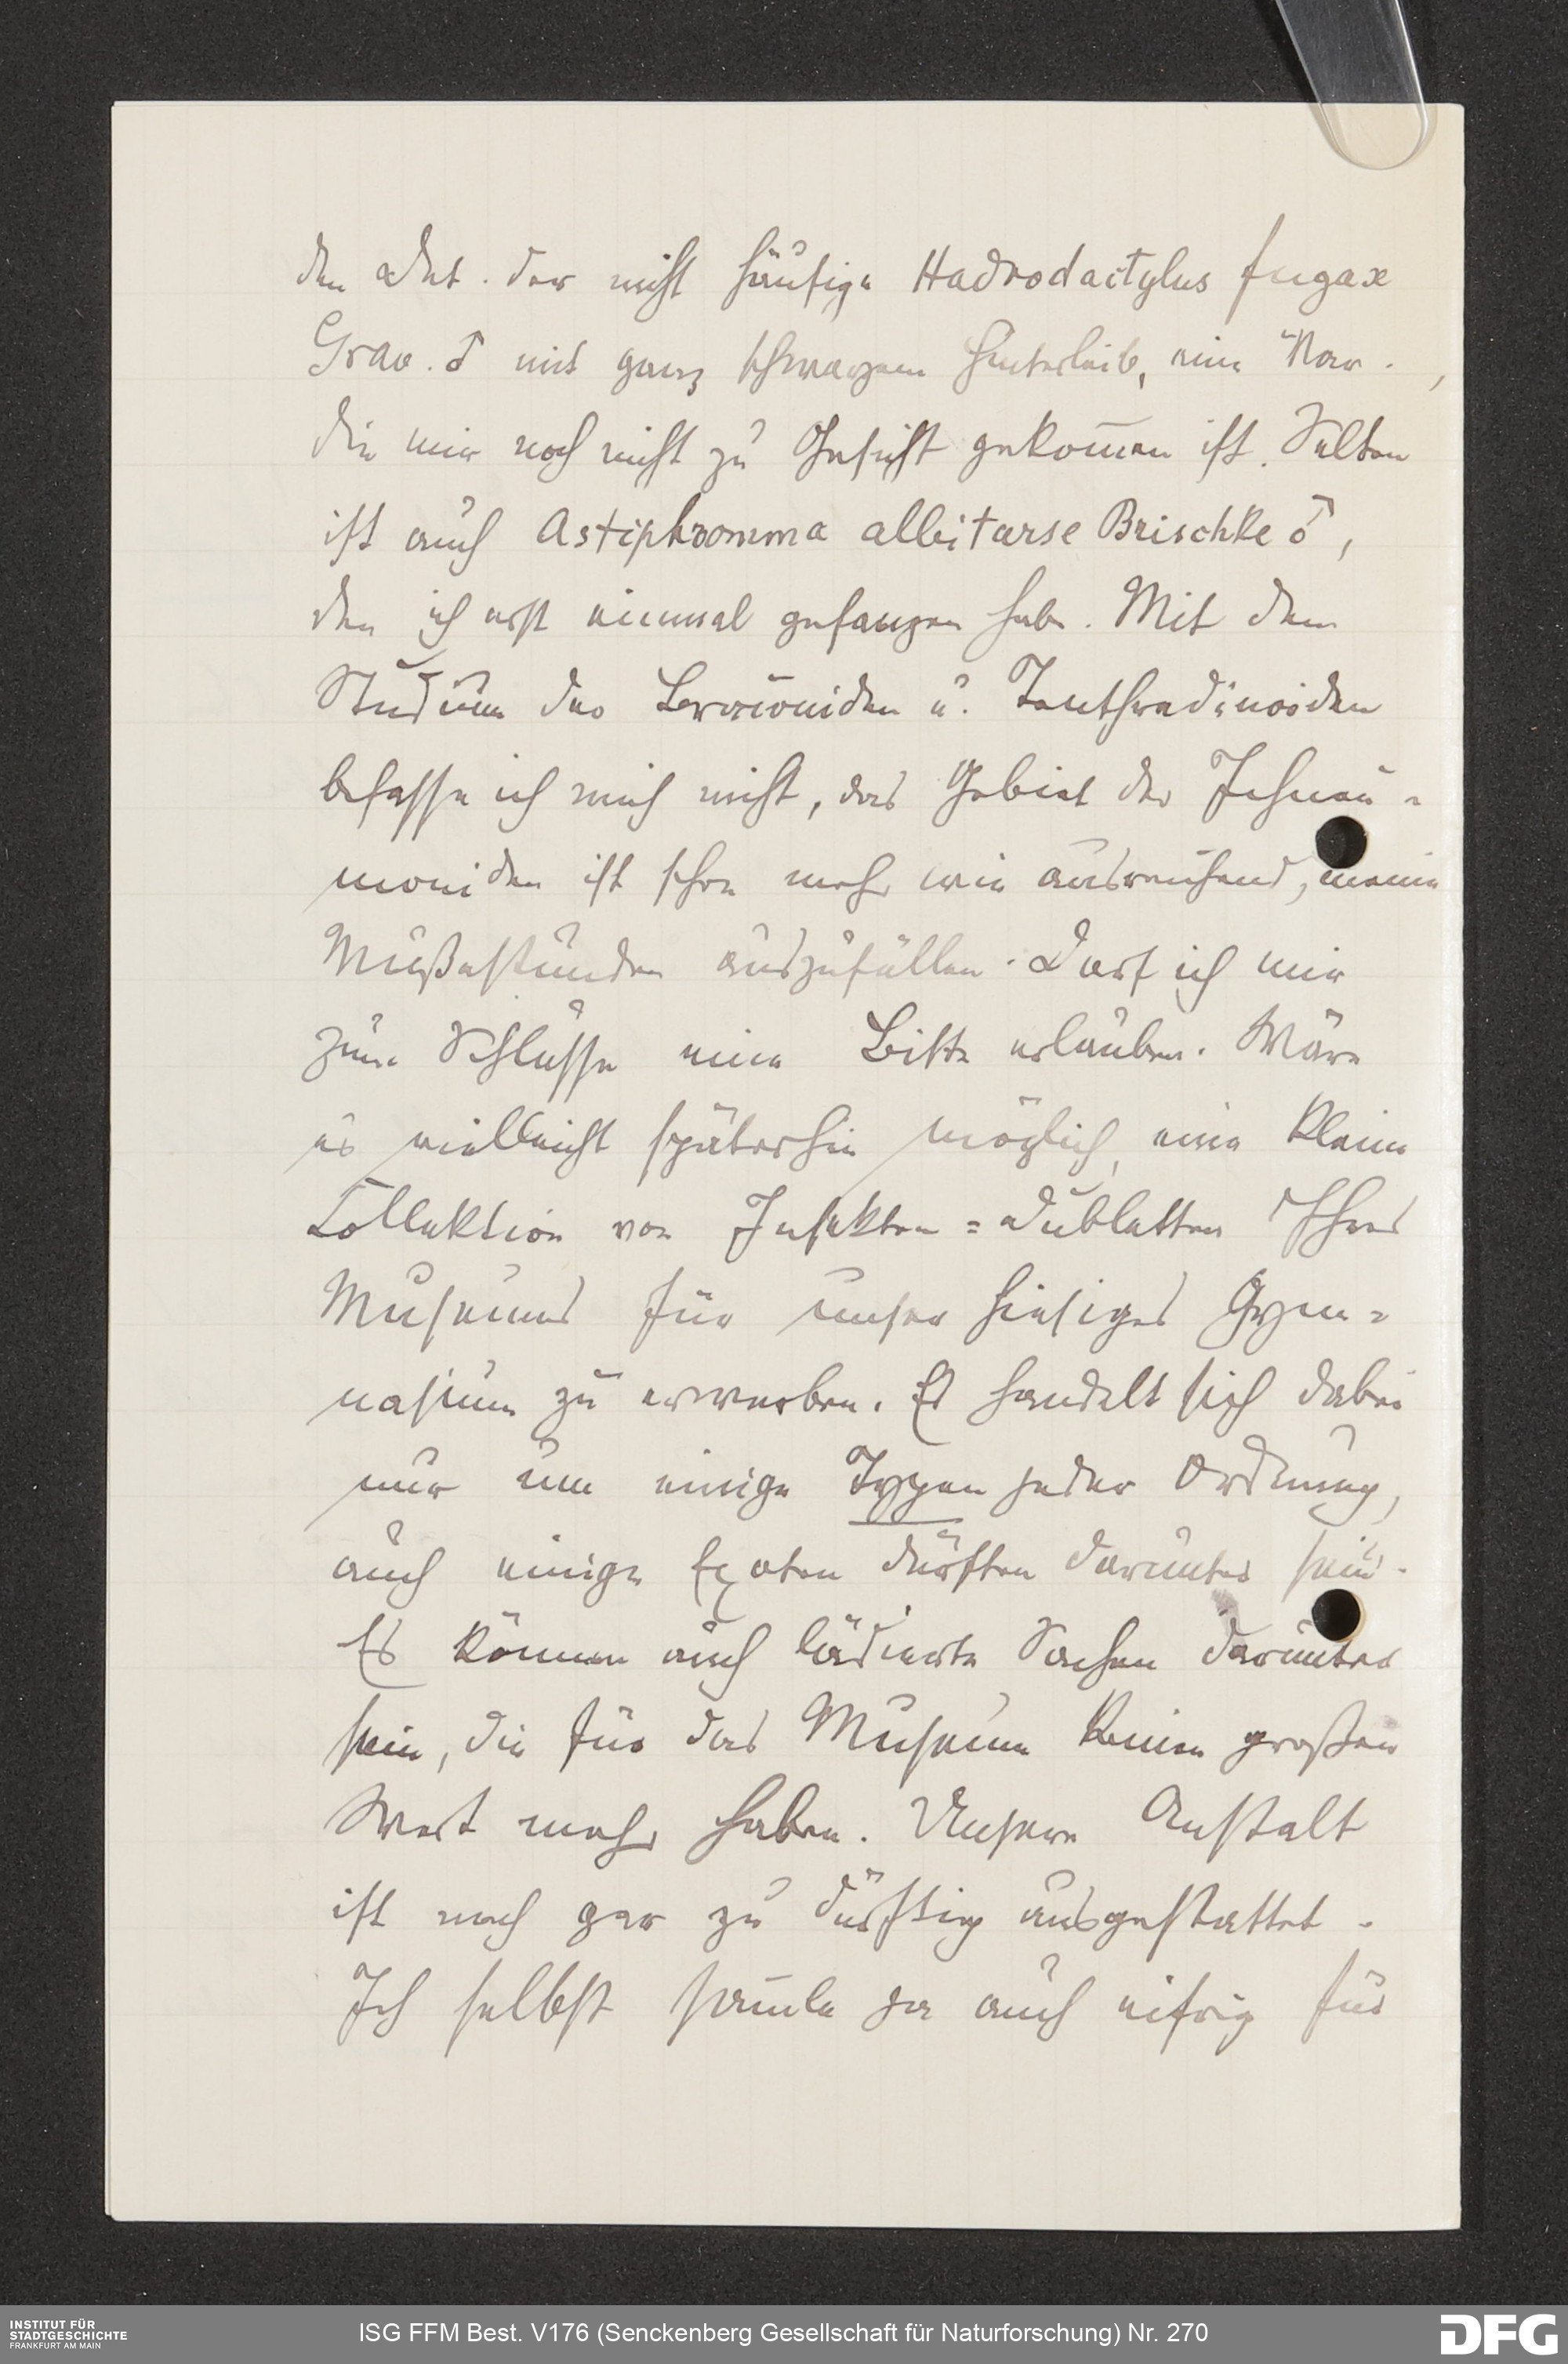 den Det. der nicht häufige Hadrodactylus fugax
Grav. ♂ mit ganz schwarzem Hinterleib, eine Var.,
die mir noch nicht zu Gesicht gekom̄en ist. Selten
ist auch Astiphromma albitarse Brischke ♂,
den ich erst einmal gefangen habe. Mit dem
Studium der Braconiden u. Tenthredinoiden
befasse ich mich nicht, das Gebiet der Ichneu-
moniden ist schon mehr wie ausreichend, meine
Mußestunden auszufüllen. Darf ich mir
zum Schlusse eine Bitte erlauben. Wäre
es vielleicht späterhin möglich, eine kleine
Collektion von Insekten=Dubletten Ihres
Museums für unser hiesiges Gym=
nasium zu erwerben. Es handelt sich dabei
nur um einige Typen jeder Ordnung,
auch einige Exoten dürften darunter sein.
Es können auch lädierte Sachen darunter
sein, die für das Museum keinen großen
Wert mehr haben. Unsere Anstalt
ist noch gar zu dürftig ausgestattet.
Ich selbst sam̄le ja auch eifrig für
INSTITUT FÜR
STADTGESCHICHTE
FRANKFURT AM MAIN
ISG FFM Best. V176 (Senckenberg Gesellschaft für Naturforschung) Nr. 270
DFG